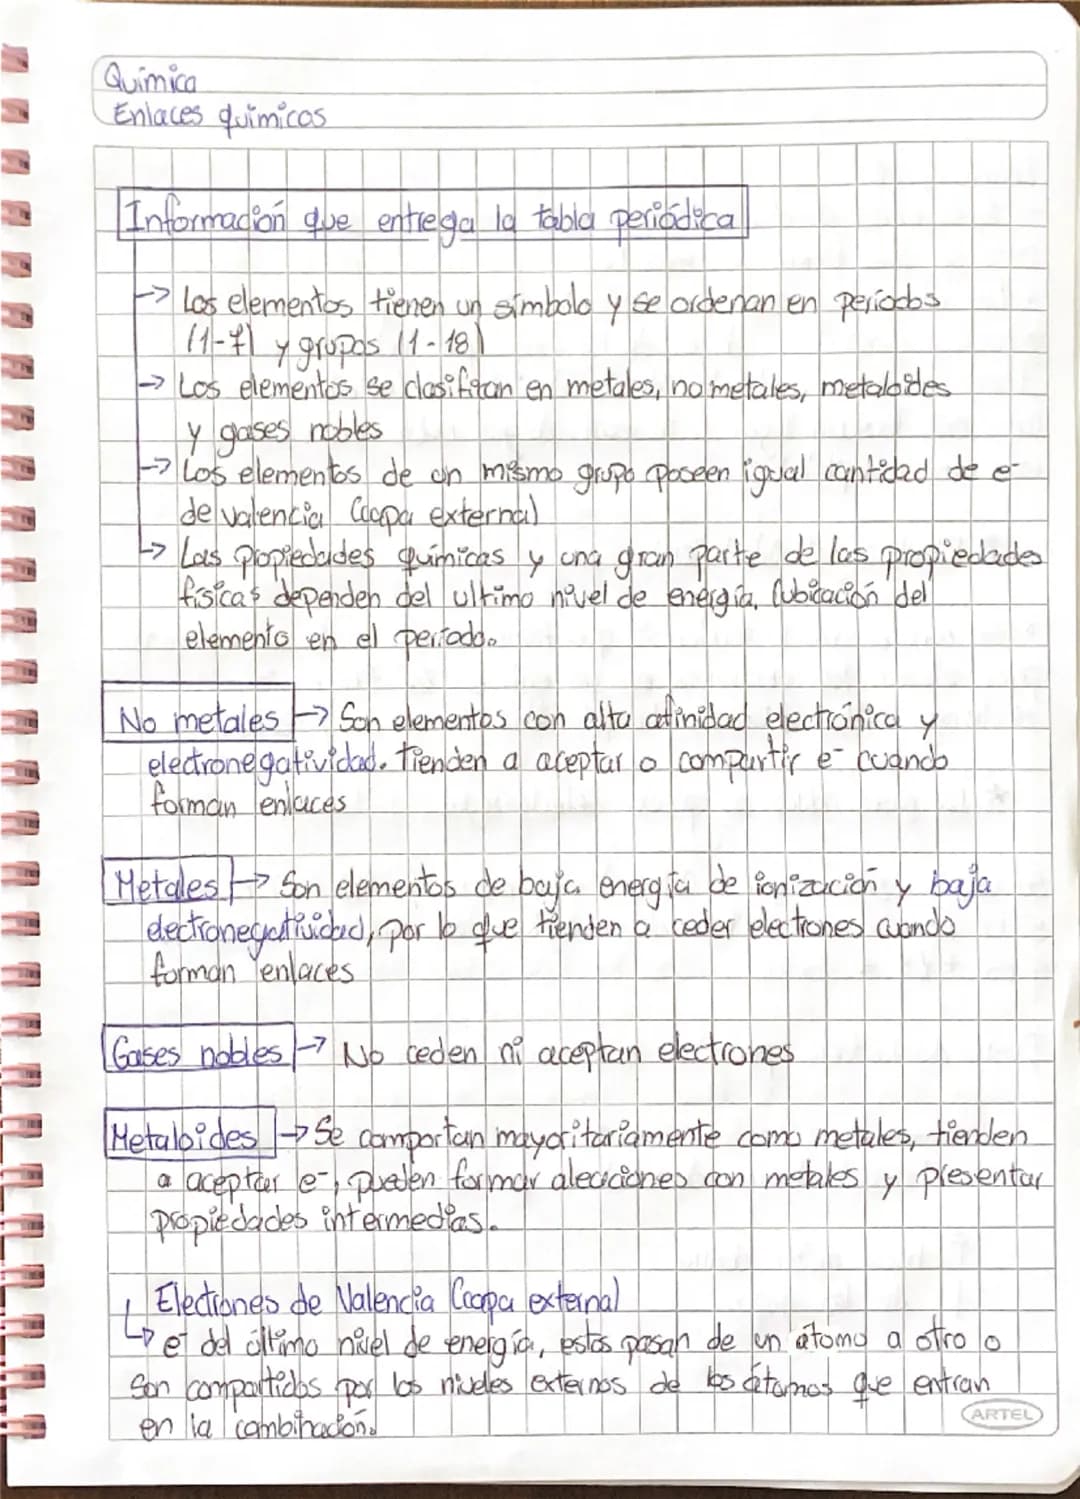 Química
Enlaces químicos
Información que entrega la tabla periódica
→ Los elementos tienen un símbolo y se ordenan en períodos
(1-7) y grupos (1-18)
→ Los elementos se clasifican en metales, no metales, metaloides
y gases nobles
→ Los elementos de un mismo grupo poseen igual cantidad de e-
de valencia (capa externa)
→ Las propiedades químicas y una gran parte de las propiedades
físicas dependen del ultimo nivel de energía, (ubicación del
elemento en el período.
No metales → Son elementos con alta afinidad electrónica y
electronegatividad. Tienden a aceptar o compartir e- cuando
forman enlaces
Metales → Son elementos de baja energía de ionización y baja
electronegatividad, por lo que tienden a ceder electrones cuando
forman enlaces
Gases nobles → No ceden ni aceptan electrones
Metaloides → Se comportan mayoritariamente como metales, tienden
a aceptar e-, pueden formar aleaciones con metales y presentar
propiedades intermedias.
Electrones de Valencia (capa externa)
↳ e- del último nivel de energía, estos pasan de un átomo a otro o
son compartidos por los niveles externos de los átomos que entran
en la combinación.
ARTEL